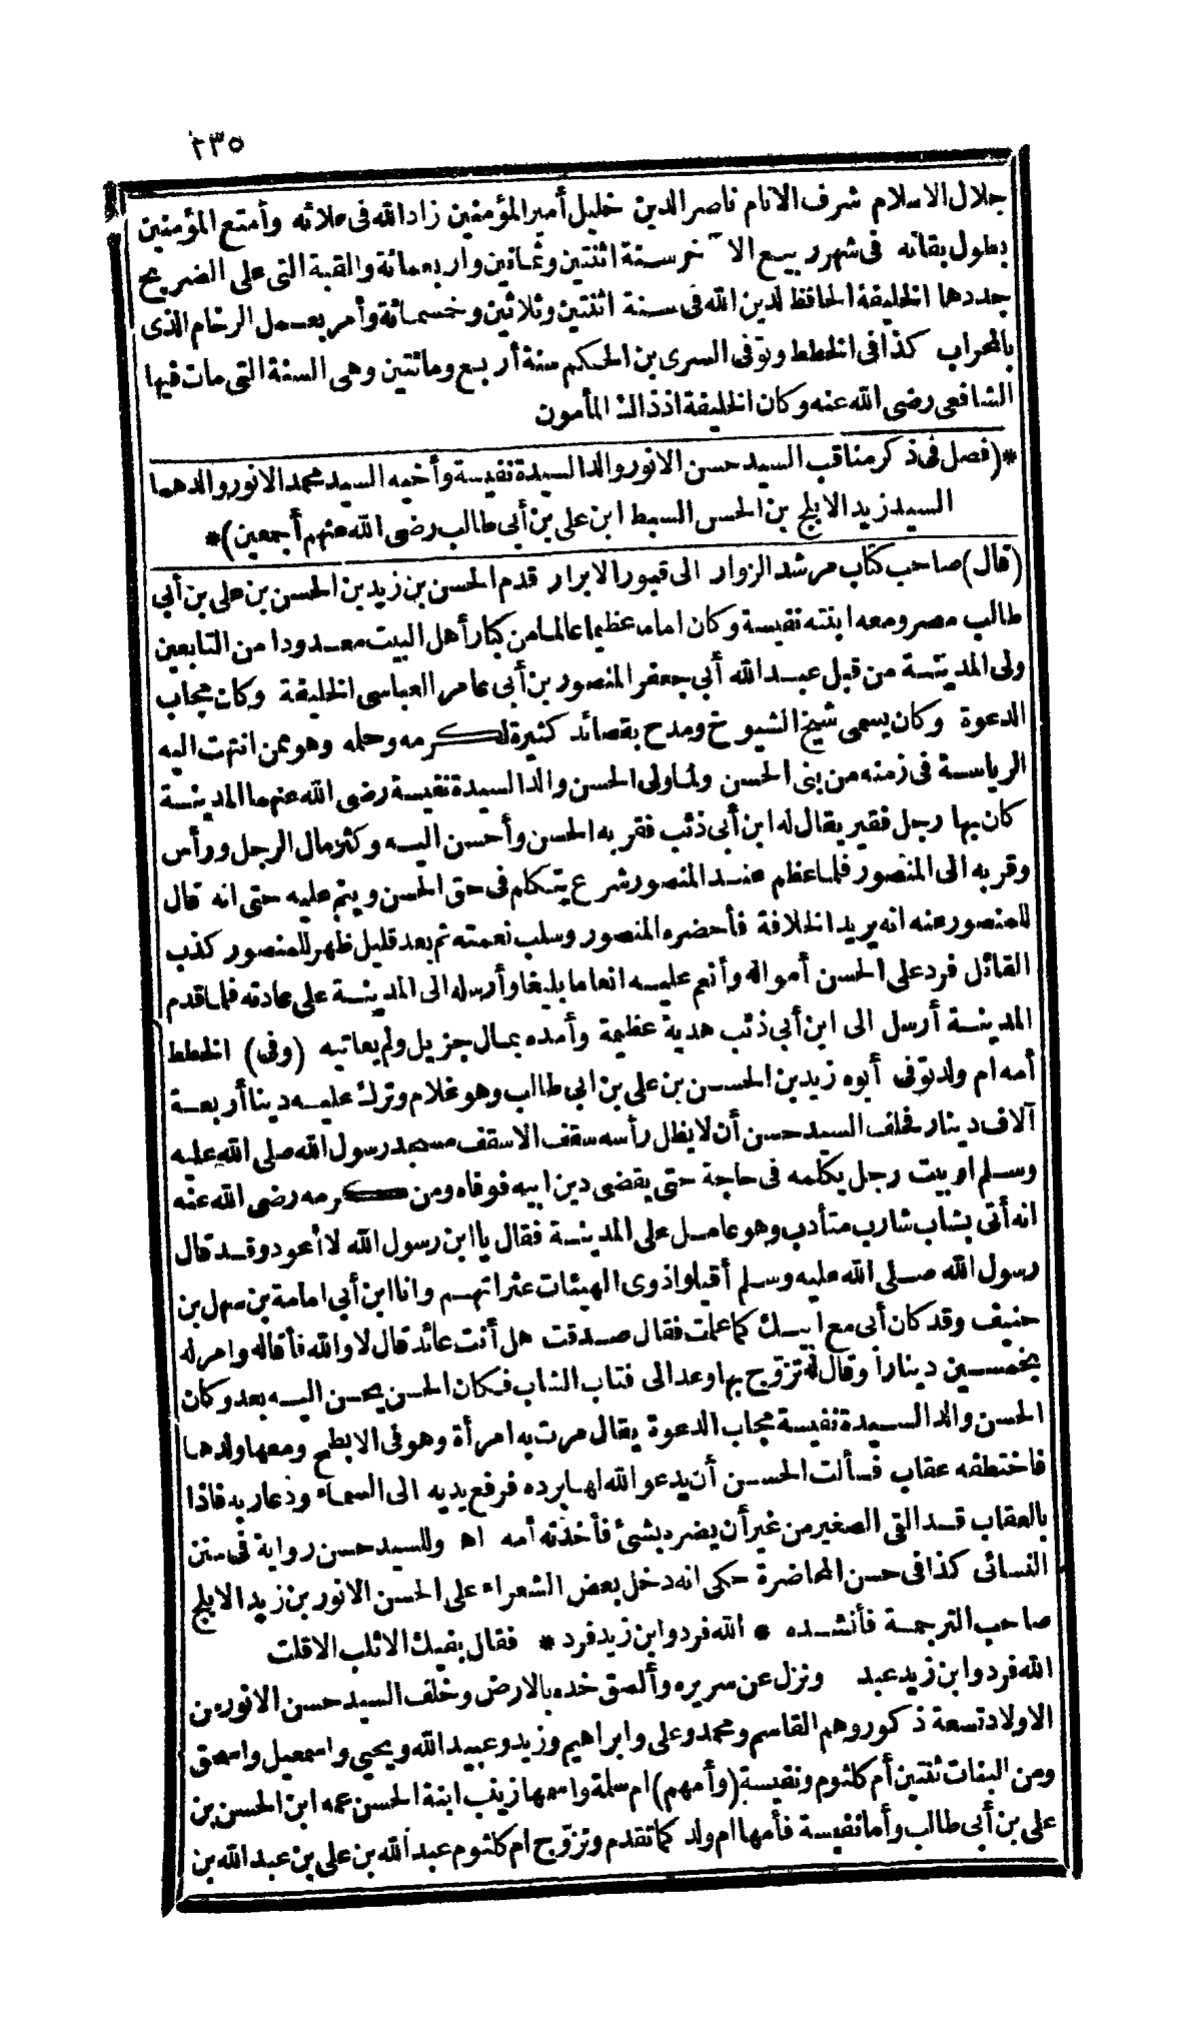 ٢٣٥
جلال الاسلام شرف الانام ناصر الدين خليل أمير المؤمنين زاد الله فى علائه وأمتع المؤمنين
بطول بقائه فى شهر ربيع الآخر سنة اثنتين وثمانين واربعمائة والقبة التى على الضريح
جددها الخليفة الحافظ لدين الله فى سنة اثنتين وثلاثين وخسمائة وأمر بعمل الرخام الذى
بالمحراب كذا فى الخطط وتوفى السرى بن الحكم سنة أربع ومائتين وهى السنة التى مات فيها
الشافعى رضى الله عنه وكان الخليفة اذ ذاك المأمون
*(فصل فى ذكر مناقب السيد حسن الانور والد السيدة نفيسة وأخيه السيد محمد الانور والدهما
السيد زيد الابلج بن الحسن السبط ابن على بن أبى طالب رضى الله عنهم أجمعين)*
(قال) صاحب كتاب مرشد الزوار الى قبور الابرار قدم الحسن بن زيد بن الحسن بن على بن أبى
طالب مصر ومعه ابنته نفيسة وكان اماما عظيما عالما من كبار أهل البيت معدودا من التابعين
ولى المدينة من قبل عبد الله أبى جعفر المنصور بن أبى عامر العباسى الخليفة وكان مجاب
الدعوة وكان يسمى شيخ الشيوخ ومدح بقصائد كثيرة لكرمه وحلمه وهو ممن انتهت اليه
الرياسة فى زمنه من بنى الحسن ولما ولى الحسن والد السيدة نفيسة رضى الله عنهما المدينة
كان بها رجل فقير يقال له ابن أبى ذئب فقربه الحسن وأحسن اليه وكثر مال الرجل ورأس
وقربه الى المنصور فلما عظم عند المنصور شرع يتكلم فى حق الحسن وينم عليه حتى انه قال
للمنصور عنه انه يريد الخلافة فأحضره المنصور وسلب نعمته ثم بعد قليل ظهر للمنصور كذب
القائل فرد على الحسن أمواله وأنعم عليه انعاما بليغا وأرسله الى المدينة على عادته فلما قدم
المدينة أرسل الى ابن أبى ذئب هدية عظيمة وأمده بمال جزيل ولم يعاتبه (وفى) الخطط
أمه ام ولد توفى أبوه زيد بن الحسن بن على بن ابى طالب وهو غلام وترك عليه دينا أربعة
آلاف دينار فحلف السيد حسن أن لا يظل رأسه سقف الا سقف مسجد رسول الله صلى الله عليه
وسلم او بيت رجل يكلمه فى حاجة حتى يقضى دين ابيه فوفاه ومن كرمه رضى الله عنه
انه أتى بشاب شارب متأدب وهو عامل على المدينة فقال يا ابن رسول الله لا أعود وقد قال
رسول الله صلى الله عليه وسلم أقيلوا ذوى الهيئات عثراتهم وانا ابن أبى امامة بن سهل بن
حنيف وقد كان أبى مع ابيك كما علمت فقال صدقت هل أنت عائد قال لا والله فأقاله وامر له
بخمسين دينارا وقال له تزوج بها وعد الى فتاب الشاب فكان الحسن يحسن اليه بعد وكان
الحسن والد السيدة نفيسة مجاب الدعوة يقال مرت به امرأة وهو فى الابطح ومعها ولدها
فاختطفه عقاب فسألت الحسن أن يدعو الله لها برده فرفع يديه الى السماء ودعا ربه فاذا
بالعقاب قد القى الصغير من غير أن يضره بشئ فأخذته أمه اه وللسيد حسن رواية فى سنن
النسائى كذا فى حسن المحاضرة حكى انه دخل بعض الشعراء على الحسن الانور بن زيد الابلج
صاحب الترجمة فأنشده * الله فرد وابن زيد فرد * فقال بفيك الاثلب الا قلت
الله فرد وابن زيد عبد ونزل عن سريره وألصق خده بالارض وخلف السيد حسن الانور من
الاولاد تسعة ذكور وهم القاسم ومحمد وعلى وابراهيم وزيد وعبيد الله ويحيى واسمعيل واسحق
ومن البنات ثنتين أم كلثوم ونفيسة (وأمهم) ام سلمة واسمها زينب ابنة الحسن عمه ابن الحسن بن
على بن أبى طالب وأما نفيسة فأمها ام ولد كما تقدم وتزوج ام كلثوم عبد الله بن على بن عبد الله بن